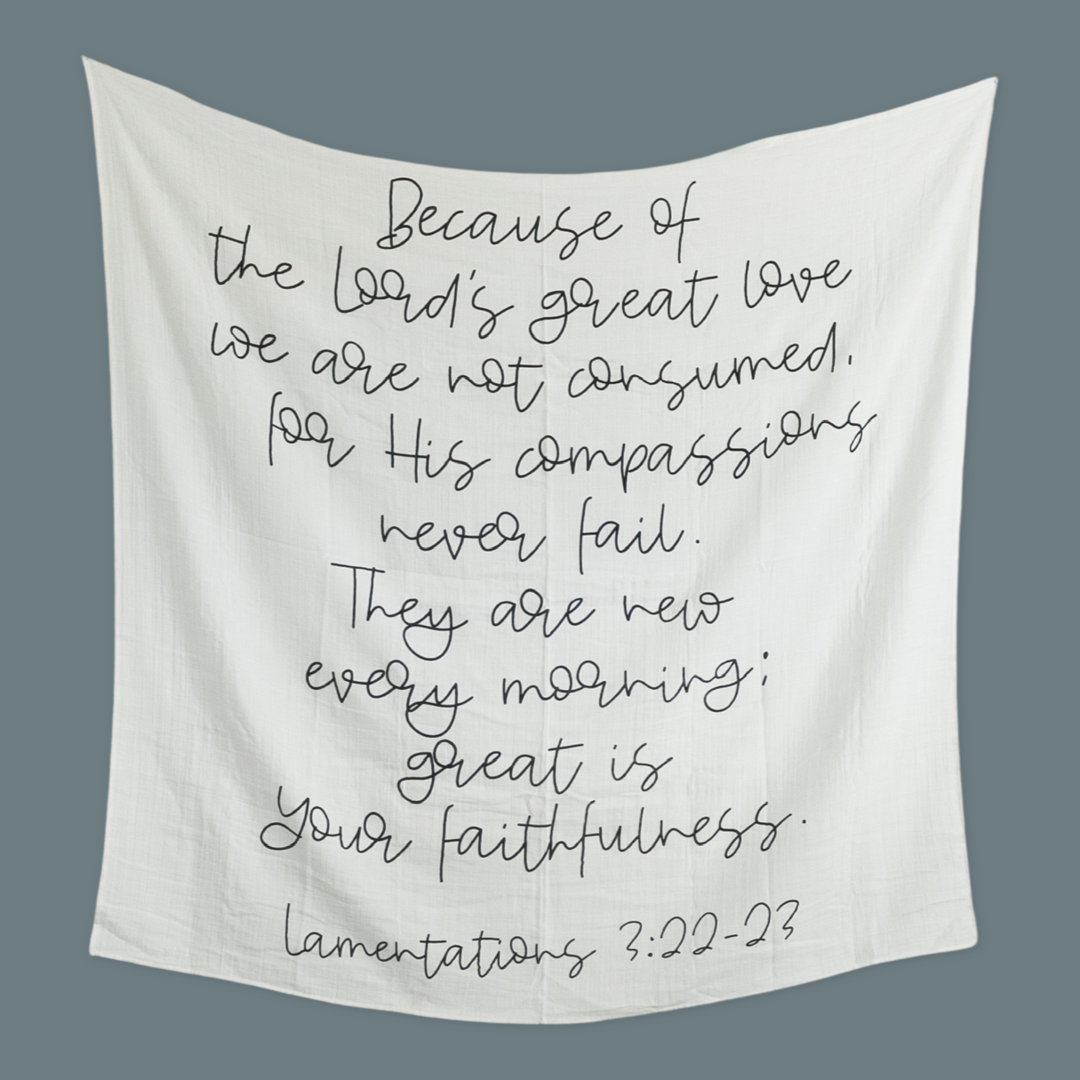 Because of
the Lord's great love
we are not consumed,
for His compassions
never fail.
They are new
every morning;
great is
Your faithfulness.
Lamentations 3:22-23